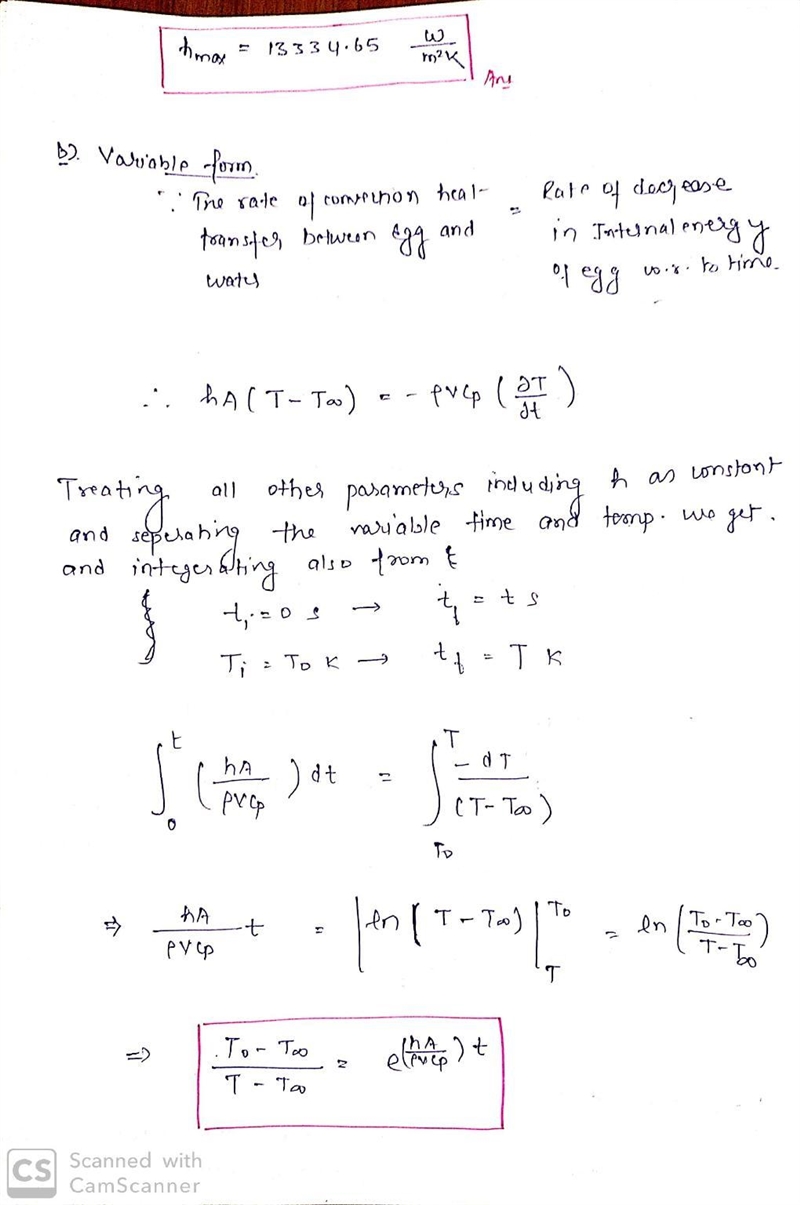 hmax = 13334.65 W/m²K
Ans
b). Variable form.
∵ The rate of convection heat = Rate of decrease
transfer between Egg and in Internal energy
water of egg w.r. to time.
∴ hA(T - T∞) = - ρVCp (∂T/∂t)
Treating all other parameters including h as constant
and seperating the variable time and temp. we get.
and integerating also from t
ti = 0 s → tf = t s
Ti = T0 K → tf = T K
∫₀ᵗ (hA/ρVCp) dt = ∫_T0^T -dT/(T - T∞)
⇒ hA/ρVCp t = |ln(T - T∞)|_T^T0 = ln(T0 - T∞/T - T∞)
⇒ T0 - T∞/T - T∞ = e^(hA/ρVCp) t
CS Scanned with
CamScanner